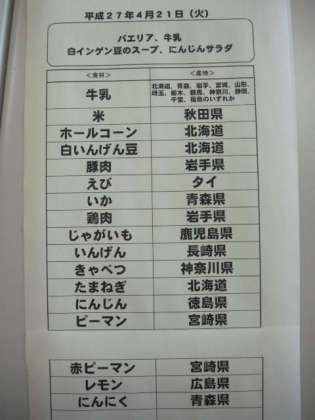 平成27年4月21日（火）
パエリア、牛乳
白インゲン豆のスープ、にんじんサラダ
＜食材＞ ＜産地＞
牛乳 北海道、青森、岩手、宮城、山形、
埼玉、栃木、群馬、神奈川、静岡、
千葉、福島のいずれか
米 秋田県
ホールコーン 北海道
白いんげん豆 北海道
豚肉 岩手県
えび タイ
いか 青森県
鶏肉 岩手県
じゃがいも 鹿児島県
いんげん 長崎県
きゃべつ 神奈川県
たまねぎ 北海道
にんじん 徳島県
ピーマン 宮崎県
赤ピーマン 宮崎県
レモン 広島県
にんにく 青森県